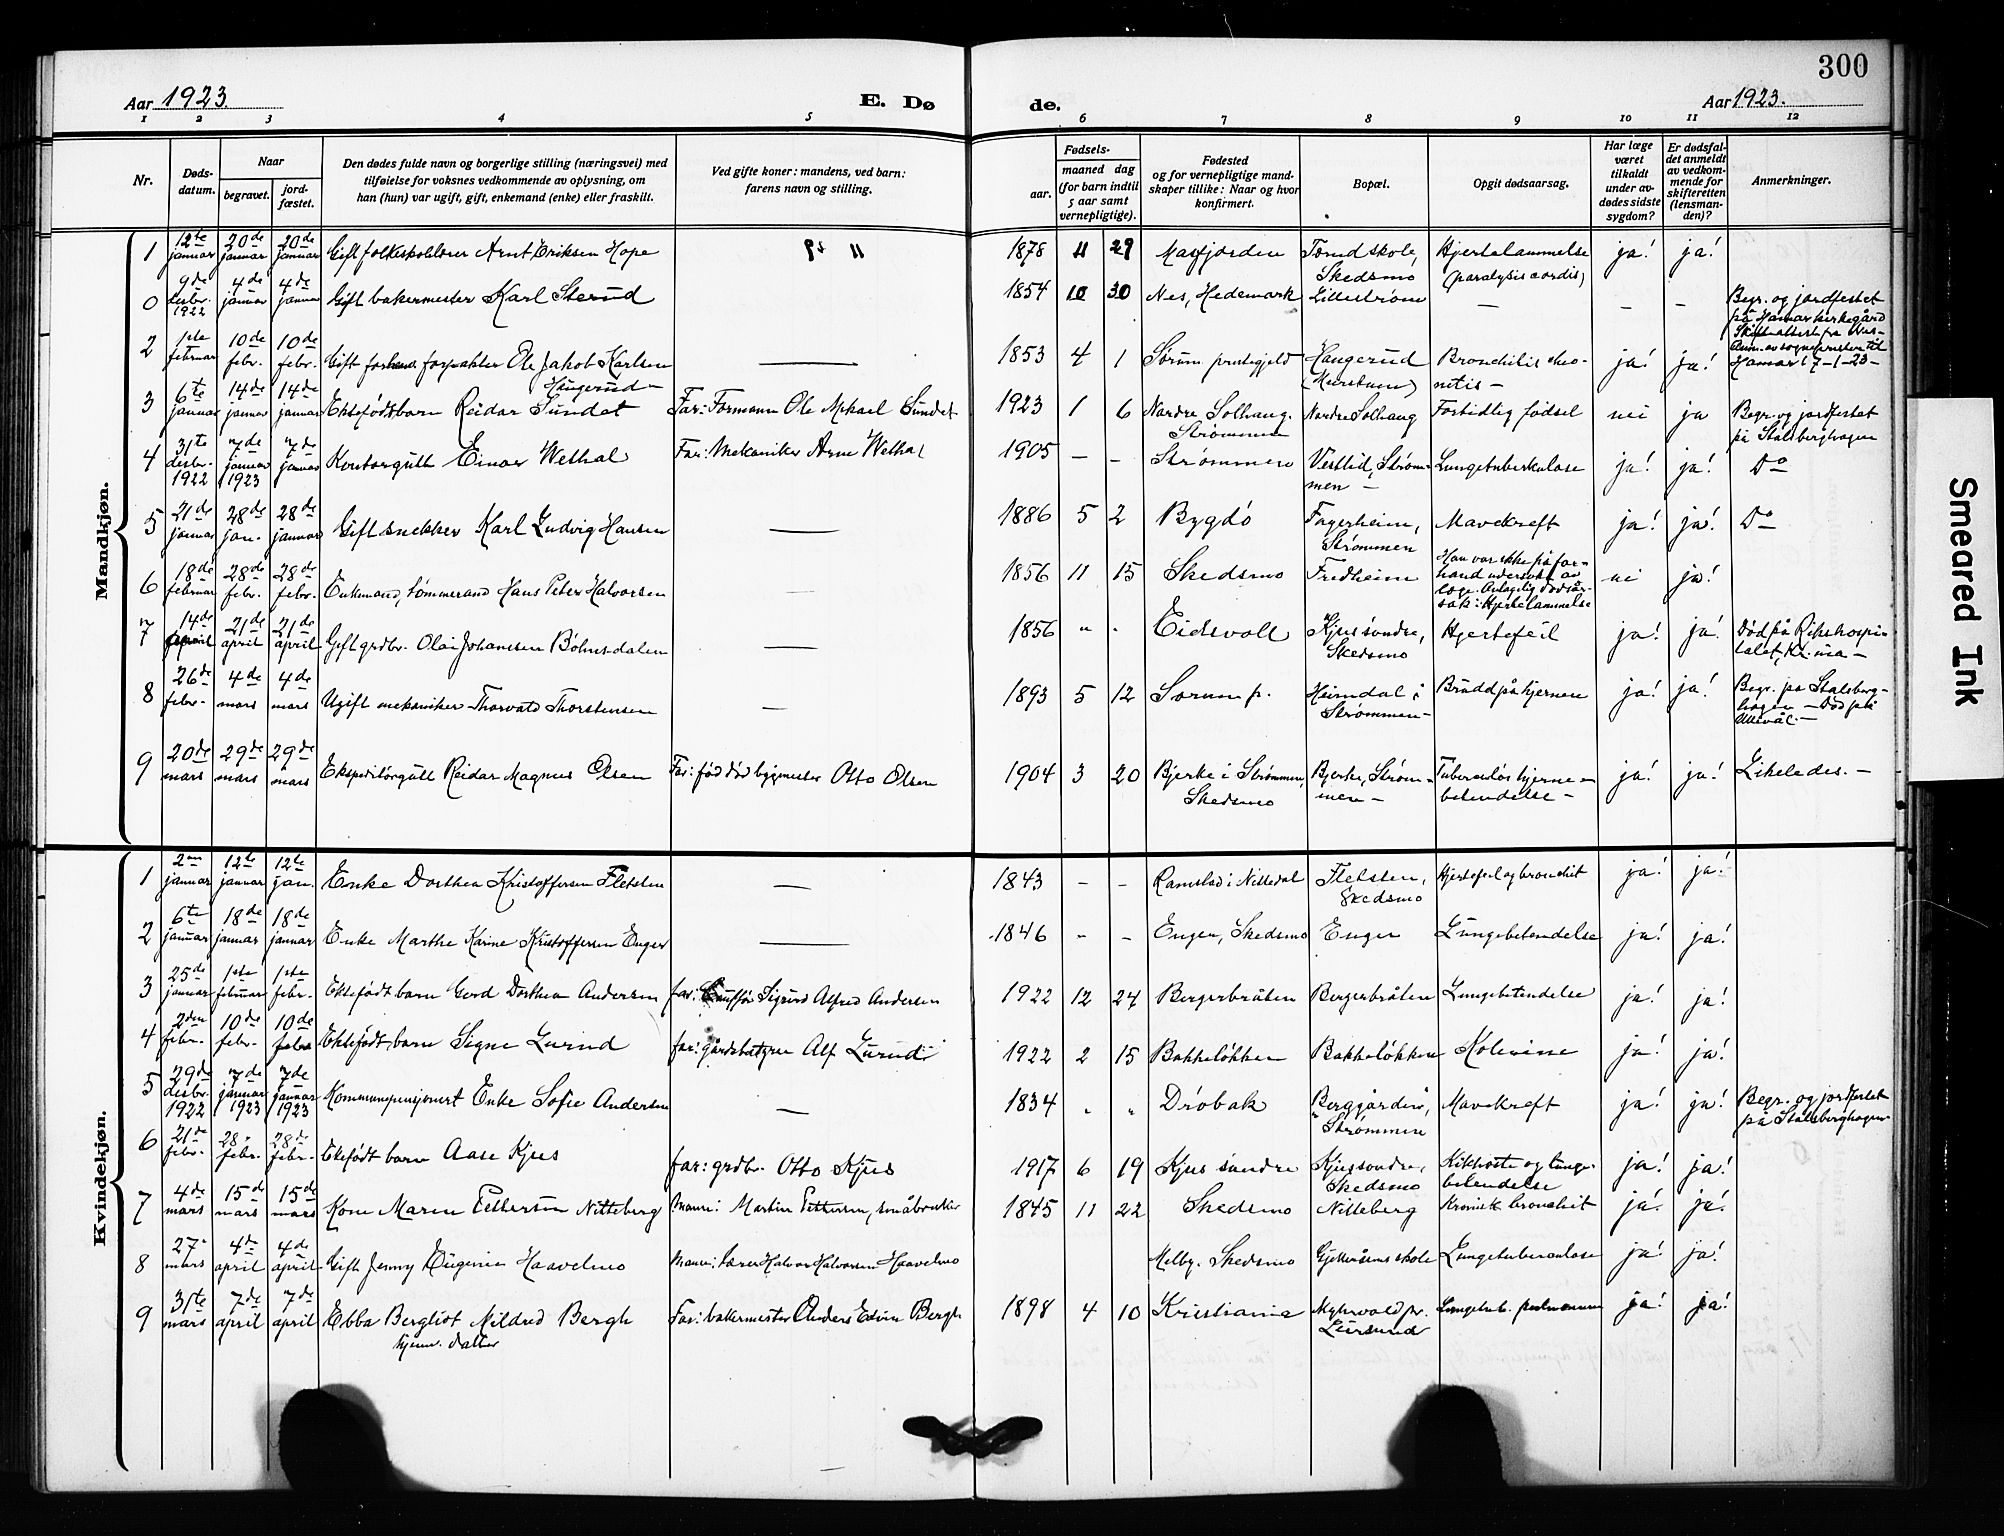 300
Aar 1923.
E. Døde.
Aar 1923.
1 2 3 4 5 6 7 8 9 10 11 12
Nr.
Døds-datum.
Naar
begravet.
jord-fæstet.
Den dødes fulde navn og borgerlige stilling (næringsvei) med
tilføielse for voksnes vedkommende av oplysning, om
han (hun) var ugift, gift, enkemand (enke) eller fraskilt.
Ved gifte koner: mandens, ved barn:
farens navn og stilling.
Fødsels-
aar.
maaned dag
(for barn indtil
5 aar samt
vernepligtige).
Fødested
og for vernepligtige mand-
skaper tillike: Naar og hvor
konfirmert.
Bopæl.
Opgit dødsaarsag.
Har læge
været
tilkaldt
under av-
dødes sidste
sygdom?
Er dødsfal-
det anmeldt
av vedkom-
mende for
skifteretten
(lensman-
den)?
Anmerkninger.
Mandkjøn.
1 12te januar 20de januar 20de januar Gift folkeskolelærer Arnt Eriksen Hope 1878 11 29 Masfjorden Tærud skole, Skedsmo Hjertelammelse (paralysis cordis) ja! ja!
0 9de desbr. 1922 4de januar 4de januar Gift bakermester Karl Sterud 1854 10 30 Nes, Hedemark Lillestrøm — — — Begr. og jordfestet på Hamar kirkegård
Hamar 17-1-23-
2 1ste februar 10de febr. 10de febr. Gift forhenv. forpakter Ole Jakob Karlsen Haugerud — — 1853 4 1 Sørum prestegjeld Haugerud ja! ja!
3 6te januar 14de januar 14de januar Ektefødt barn Reidar Sundet Far: Formann Ole Mikael Sundet 1923 1 6 Nordre Solhaug. Strømmen Nordre Solhaug For tidlig fødsel nei ja Begr. og jordfestet på Stalsberghagen
4 31te desbr. 1922 7de januar 1923 7de januar Kontorgutt Einar Wethal Far: Mekaniker Arne Wethal 1905 - - Strømmen Vestlid, Strømmen — Lungetuberkulose ja! ja! Do
5 21de januar 28de jan. 28de januar Gift snekker Karl Ludvig Hansen — 1886 5 2 Bygdö Fagerheim, Strömmen Mavekreft ja! ja! Do
6 18de februar 28de febr. 28de febr. Enkemand, tømmermand Hans Peter Halvorsen — 1856 11 15 Skedsmo Fredheim Han var ikke på forhand undersøkt av læge. Antagelig dødsårsak: Hjertelammelse nei ja!
7 14de april 21de april 21de april Gift grdbr. Olai Johansen Böhnsdalen — 1856 " . Eidsvoll Kjus søndre, Skedsmo Hjertefeil ja! ja! Död på Rikshospitalet, Kr.nia —
8 26de febr. 4de mars 4de mars Ugift mekaniker Thorvald Thorstensen — 1893 5 12 Sørum p. Heimdal i Strømmen — Brudd på hjernen ja! ja! Begr. på Stalsberghagen — Död på Ullevål. —
9 20de mars 29de mars 29de mars Ekspeditörgutt Reidar Magnus Olsen Far: byggmester Otto Olsen 1904 3 20 Bjerke i Strømmen, Skedsmo Bjerke, Strømmen — Tuberculös hjernebetendelse — ja! ja! Likeledes. —
Kvindekjøn.
1 2nen januar 12te januar 12te jan. Enke Dorthea Kristoffersen Fletsten — 1843 - - Ramstad i Nittedal Fletsten, Skedsmo Hjertefeil og bronchit ja! ja!
2 6te januar 18de januar 18de januar Enke Marthe Karine Kristoffersen Enger — 1846 - - Enger, Skedsmo Enger Lungebetendelse ja! ja!
3 25de januar 1ste februar 1ste febr. Ektefødt barn Gerd Dorthea Andersen far: Chauffør Sigurd Alfred Andersen 1922 12 24 Bergerbråten Bergerbråten Lungebetendelse ja! ja!
4 2den febr. 10de febr. 10de febr. Ektefødt barn Signe Lurud far: gårdsbestyrer Alf Lurud 1922 2 15 Bakkeløkken Bakkeløkken Kolerine ja! ja!
5 29de desbr. 1922 7de januar 1923 7de januar 1923 Kommunepensjonert Enke Sofie Andersen — 1834 " " Dröbak Berggården, Strømmen Mavekreft ja! ja! Begr. og jordfestet på Stalsberghagen
6 21de febr. 28 febr. 28de febr. Ektefödt barn Aase Kjus far: grdbr. Otto Kjus 1917 6 19 Kjus søndre Kjus søndre, Skedsmo Kikhoste og lungebetendelse ja! ja!
7 4de mars 15de mars 15de mars Kone Maren Pettersen Nitteberg Mann: Martin Pettersen, småbruker 1845 11 22 Skedsmo Nitteberg Kronisk bronchit ja! ja!
8 27 mars 4de april 4de april Gift Jenny Eugenie Haavelmo Mann: Lærer Halvor Halvorsen Haavelmo Melby, Skedsmo Gjelleråsens skole Lungetuberculose ja! ja!
9 31te mars 7de april 7de april Ebba Bergliot Mildrid Bergh hjemv. datter Far: bakermester Anders Edvin Bergh 1898 4 10 Kristiania Myhrvold pr. Leirsund Lungetub. pulmonum ja! ja!
Smeared Ink